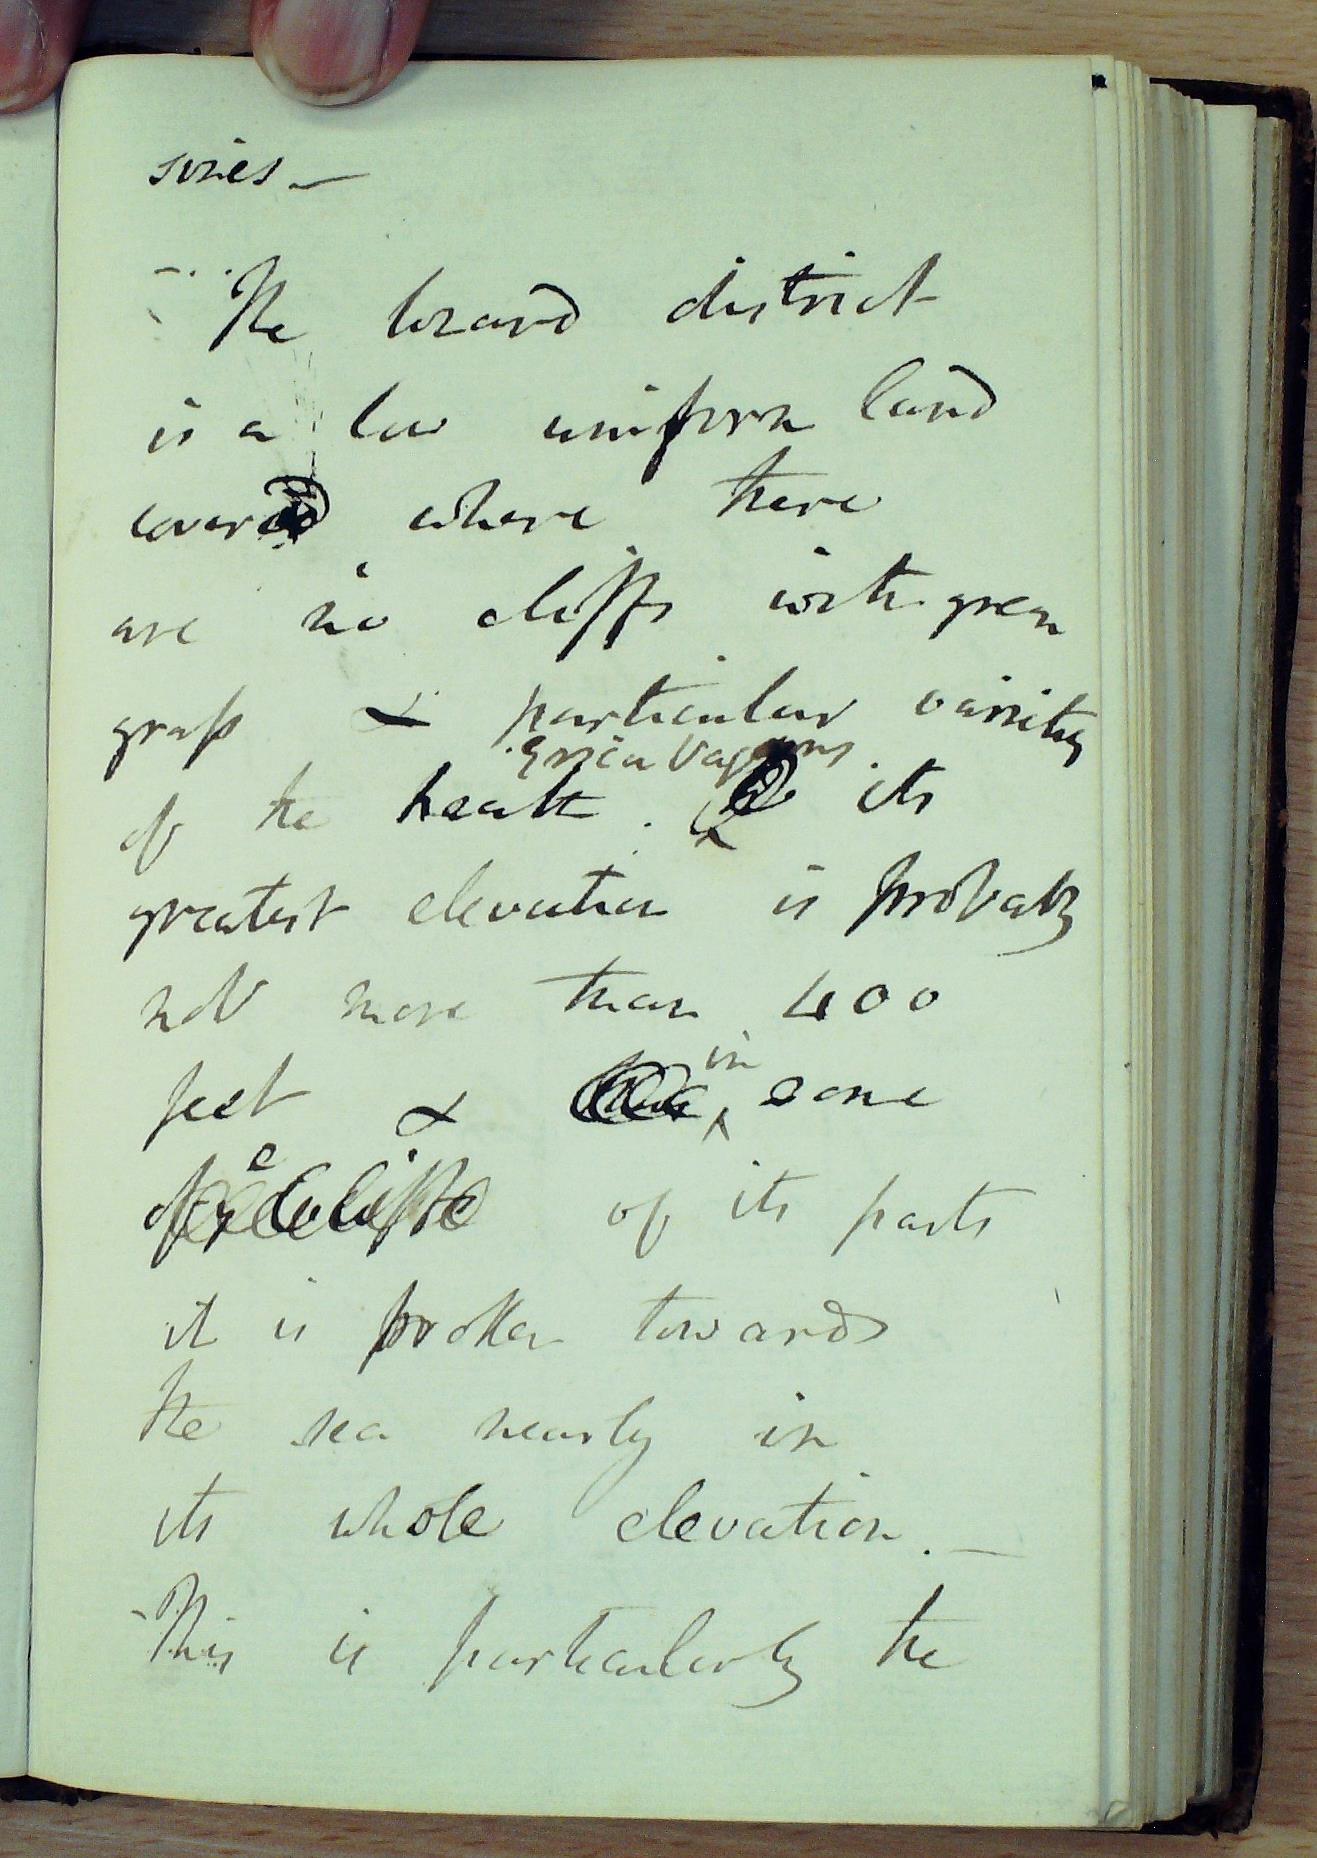 series. —
The lizard district
is a low uniform land
covered where there
are no cliffs with green
grass & particular variety
Erica Vagans
of the heath. its
greatest elevation is probably
not more than 400
feet & in some
of its parts
it is broken towards
the sea nearly in
its whole elevation. —
This is particularly the